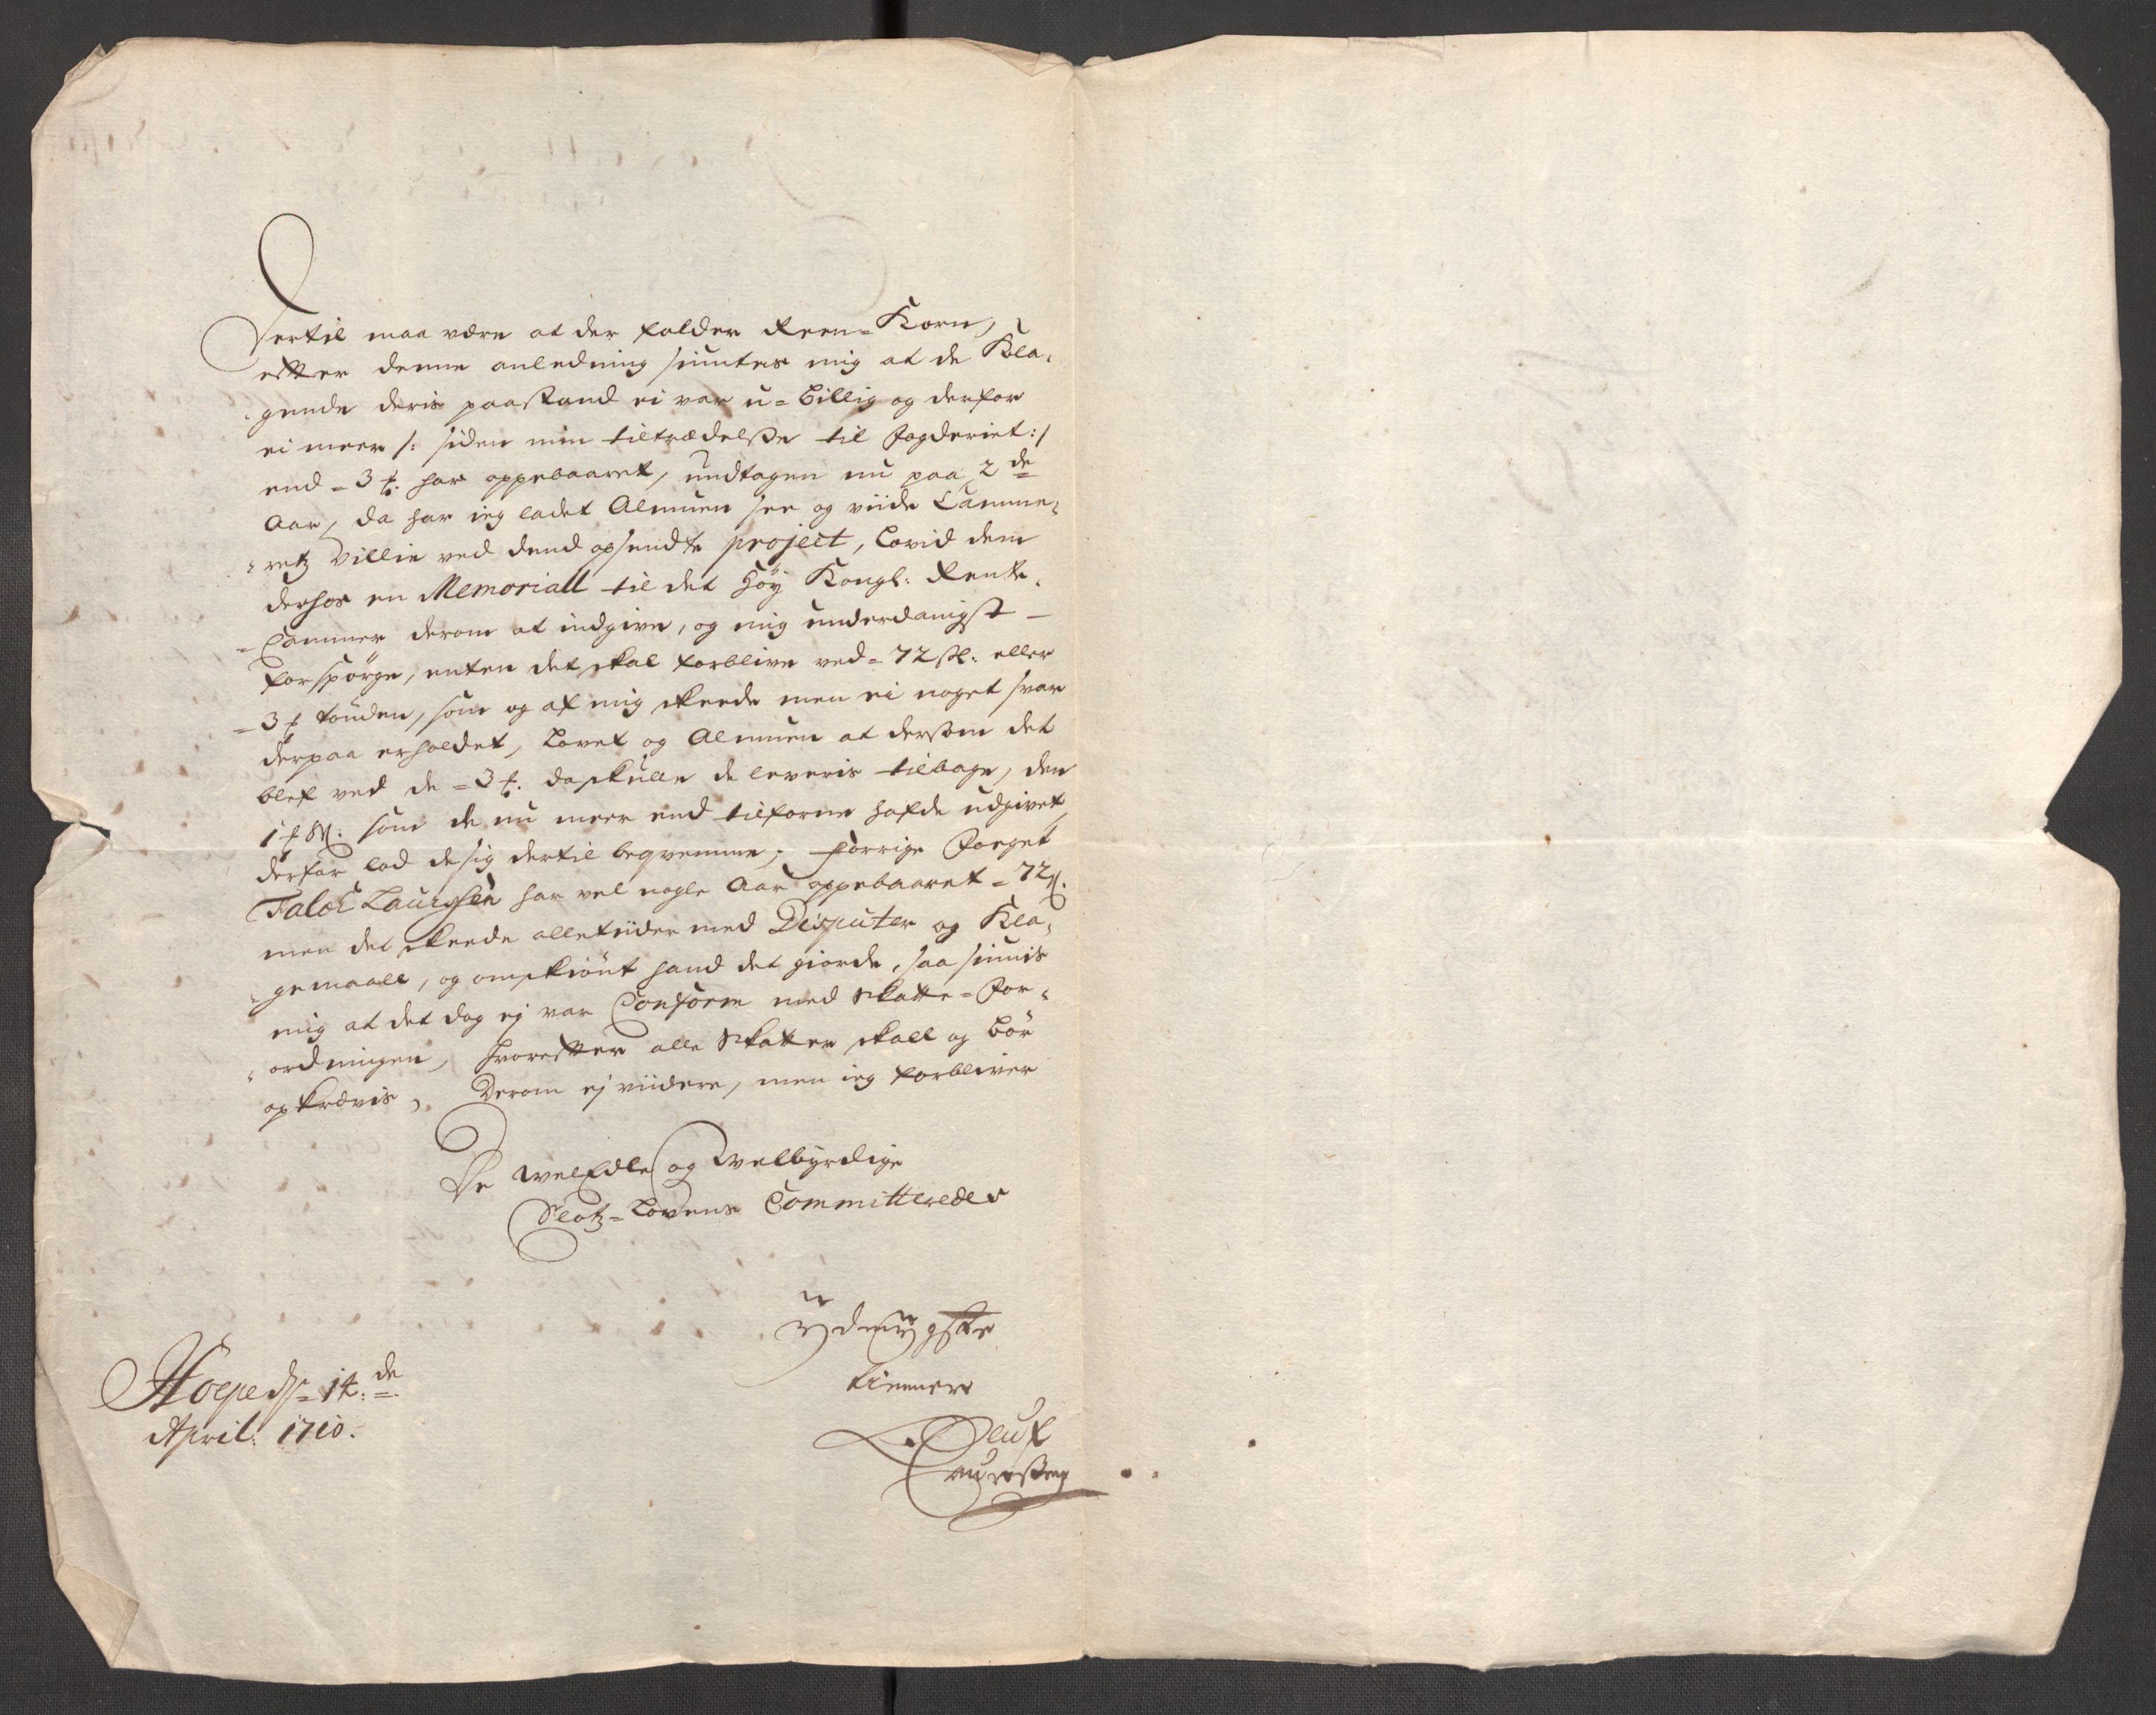 Dertil maa være at der falder Reen=Korn,
efter denne anledning siuntes mig at de Kla=
gende deris paastand ei var u=billig og derfor
ei meer /: siden min tiltrædelße til Fogderiet :/
end = 3 ƒ. har oppebaaret, undtagen nu paa 2de
Aar, da har ieg ladet Almuen see og viide Camme=
retz Villie ved dend opsendte project, lovid dem
derhos en Memoriall til det Höÿ Kongl: Rente=
Cammer derom at indgive, og mig underdanigst
forspörge, enten det skal forblive ved = 72 sk: eller
= 3 ƒ tönden, som og af mig skeede men ei noget svar
derpaa erholdet, lovet og Almuen at dersom det
blef ved de = 3 ƒ. da skulle de leveris tilbage, den
1 ƒ som de nu meer end tilforne hafde udgivet,
derfor lod de sig dertil beqvemme; forrige Foeget
Falck Laurssen har vel nogle Aar oppebaaret = 72 sk.
men det skeede alletiider med Disputer og Kla=
gemaall, og omskiönt hand det giorde, saa siunis
mig at det dog ej var Conform med Skatte=For=
ordningen, hvorefter alle Skatter skall og bör
opkrævis, Derom ej viidere, men ieg forbliver
De WelEdle og Welbyrdige
Slotz=Lovens Committerede
ÿdmÿgste
tienner
Oluf
Laurssen
Hope ds = 14: de
April: 1710.